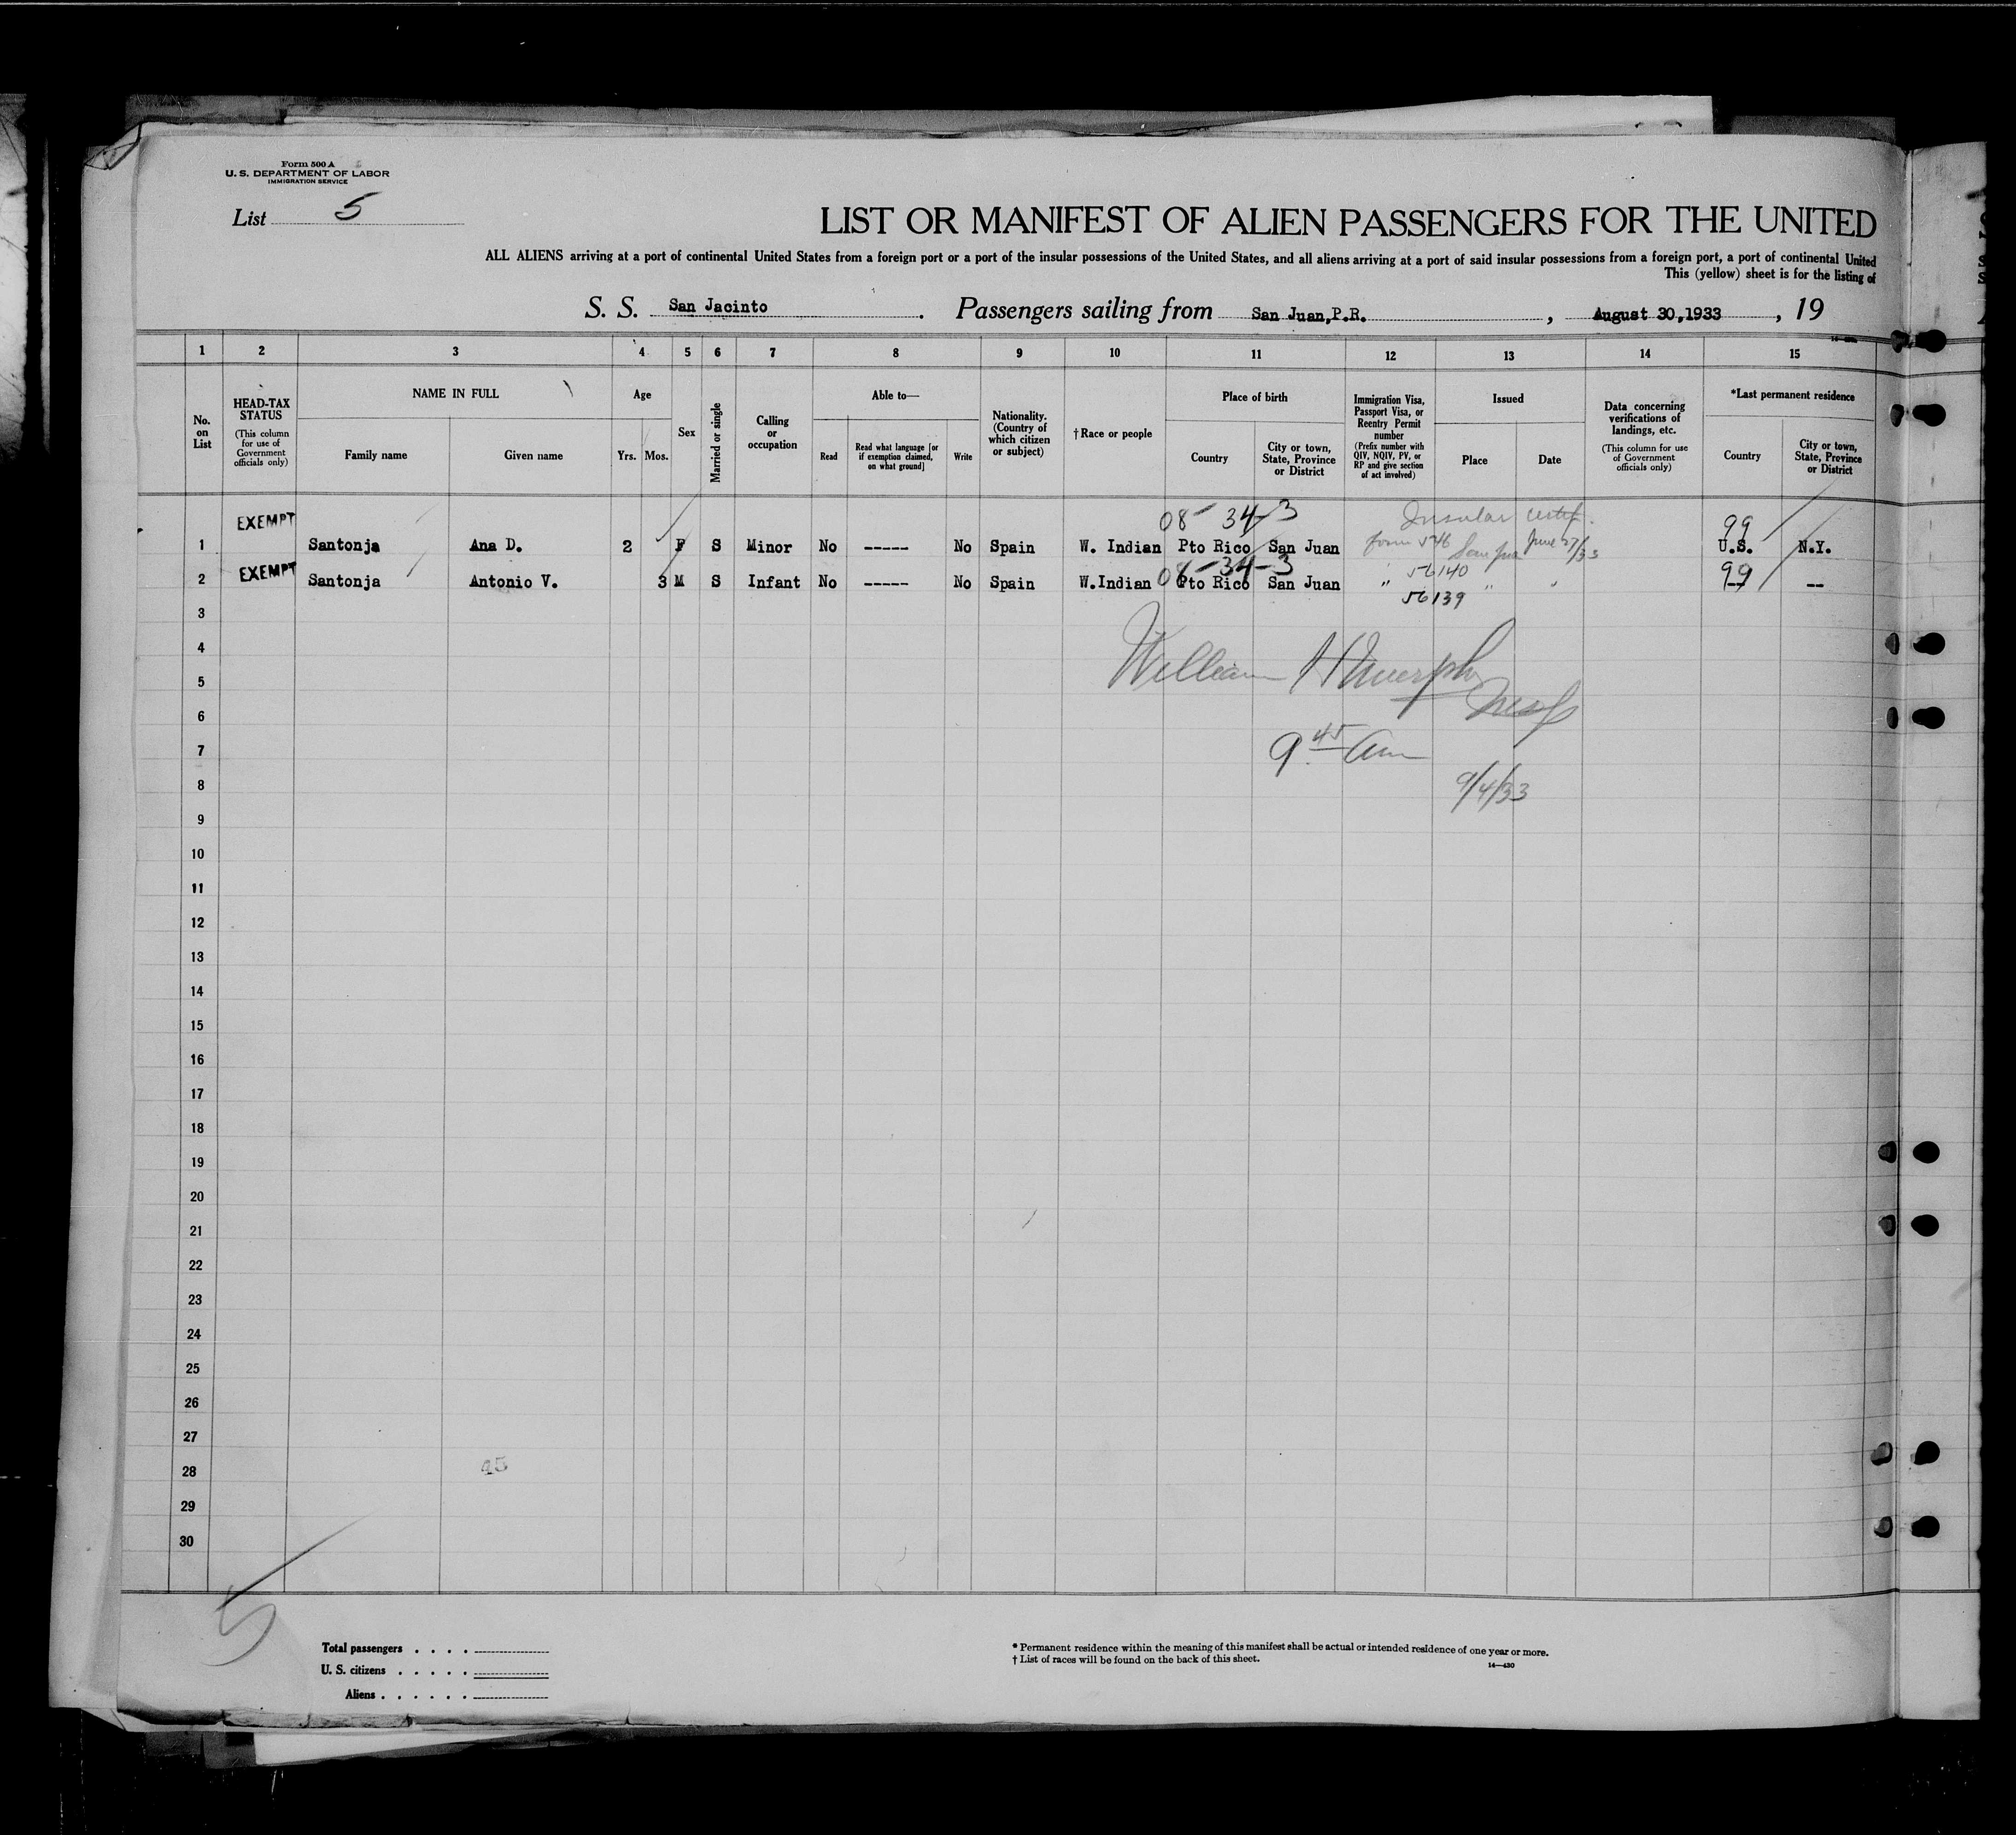 Form 500 A
U. S. DEPARTMENT OF LABOR
IMMIGRATION SERVICE
List 5
LIST OR MANIFEST OF ALIEN PASSENGERS FOR THE UNITED
ALL ALIENS arriving at a port of continental United States from a foreign port or a port of the insular possessions of the United States, and all aliens arriving at a port of said insular possessions from a foreign port, a port of continental United
This (yellow) sheet is for the listing of
S. S. San Jacinto. Passengers sailing from San Juan,P.R., August 30,1933, 19
1 2 3 4 5 6 7 8 9 10 11 12 13 14 15
No. on List
HEAD-TAX STATUS (This column for use of Government officials only)
NAME IN FULL
Family name Given name
Age
Yrs. Mos.
Sex
Married or single
Calling or occupation
Able to—
Read
Read what language [or if exemption claimed, on what ground]
Write
Nationality. (Country of which citizen or subject)
†Race or people
Place of birth
Country
City or town, State, Province or District
Immigration Visa, Passport Visa, or Reentry Permit number (Prefix number with QIV, NQIV, PV, or RP and give section of act involved)
Issued
Place Date
Data concerning verifications of landings, etc. (This column for use of Government officials only)
*Last permanent residence
Country
City or town, State, Province or District
EXEMPT 08-34-3 Insular certif. 99
1 Santonja Ana D. 2 F S Minor No ----- No Spain W. Indian Pto Rico San Juan form 546 San Jua June 27/33 U.S. N.Y.
EXEMPT 08-34-3 56140 99
2 Santonja Antonio V. 3 M S Infant No ----- No Spain W.Indian Pto Rico San Juan " " " -- --
56139
3
4
William H Murphy
5
6
7
9 45 am
8
9/4/33
9
10
11
12
13
14
15
16
17
18
19
20
21
22
23
24
25
26
27
28
29
30
5
Total passengers . . . .
U. S. citizens . . . . .
Aliens . . . . . .
* Permanent residence within the meaning of this manifest shall be actual or intended residence of one year or more.
† List of races will be found on the back of this sheet.
14—430